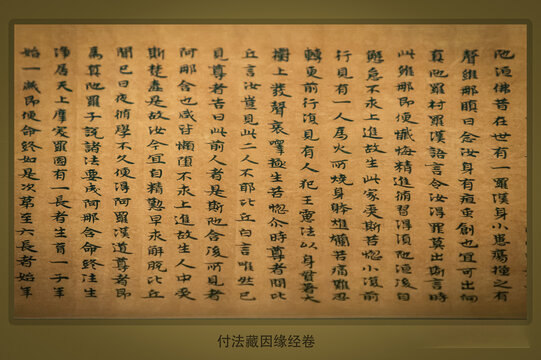 陁洹佛昔在世有一羅漢身小患瘡捶之有
聲維那瞋曰念汝身有瘡重創也宜可出向
真陁羅村羅漢語言令汝得罪莫出斯言時
此維那即便懺悔精進修習得湏陁洹後自
懈怠不求上進故生此家受斯苦惱小復前
行見有一人爲火所燒身爛苦痛難忍
轉更前行復見有人犯王憲法以身貫著大
樹上發聲哀嘷極生苦惱介時尊者問比
丘言汝豈見此二人不耶比丘白言唯然已
見尊者告曰此前人者是斯陁含後所見者
阿那含也咸皆懶惰不求上進故生人中受
斯楚毒是故汝今宜自精懃早求解脫比丘
聞已日夜修學不久便得阿羅漢道尊者即
爲真陁羅子說諸法要成阿那含命終生
淨居天上摩突羅國有一長者生育一子年
始一歲即便命終如是次第至六長者始年
付法藏因缘经卷